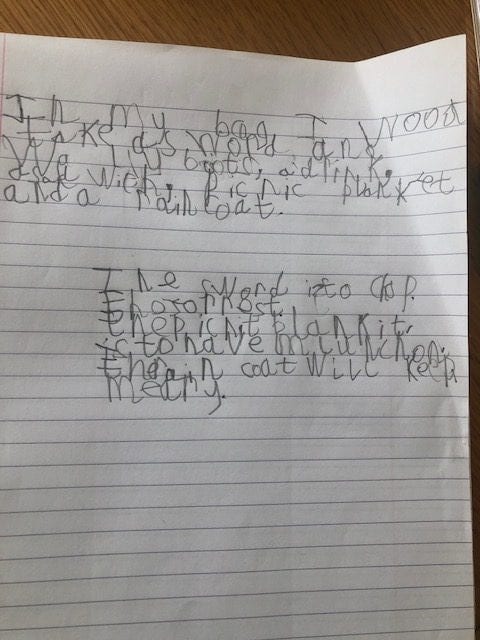 In My bag I Wood
take a sword and
Wa lly boots, a drink,
a sadwich, Picnic planket
and a rain coat.
The sword is to chop.
thoro
the picnit plankit.
is to have my lunch on.
the rain coat will keep
me dry.